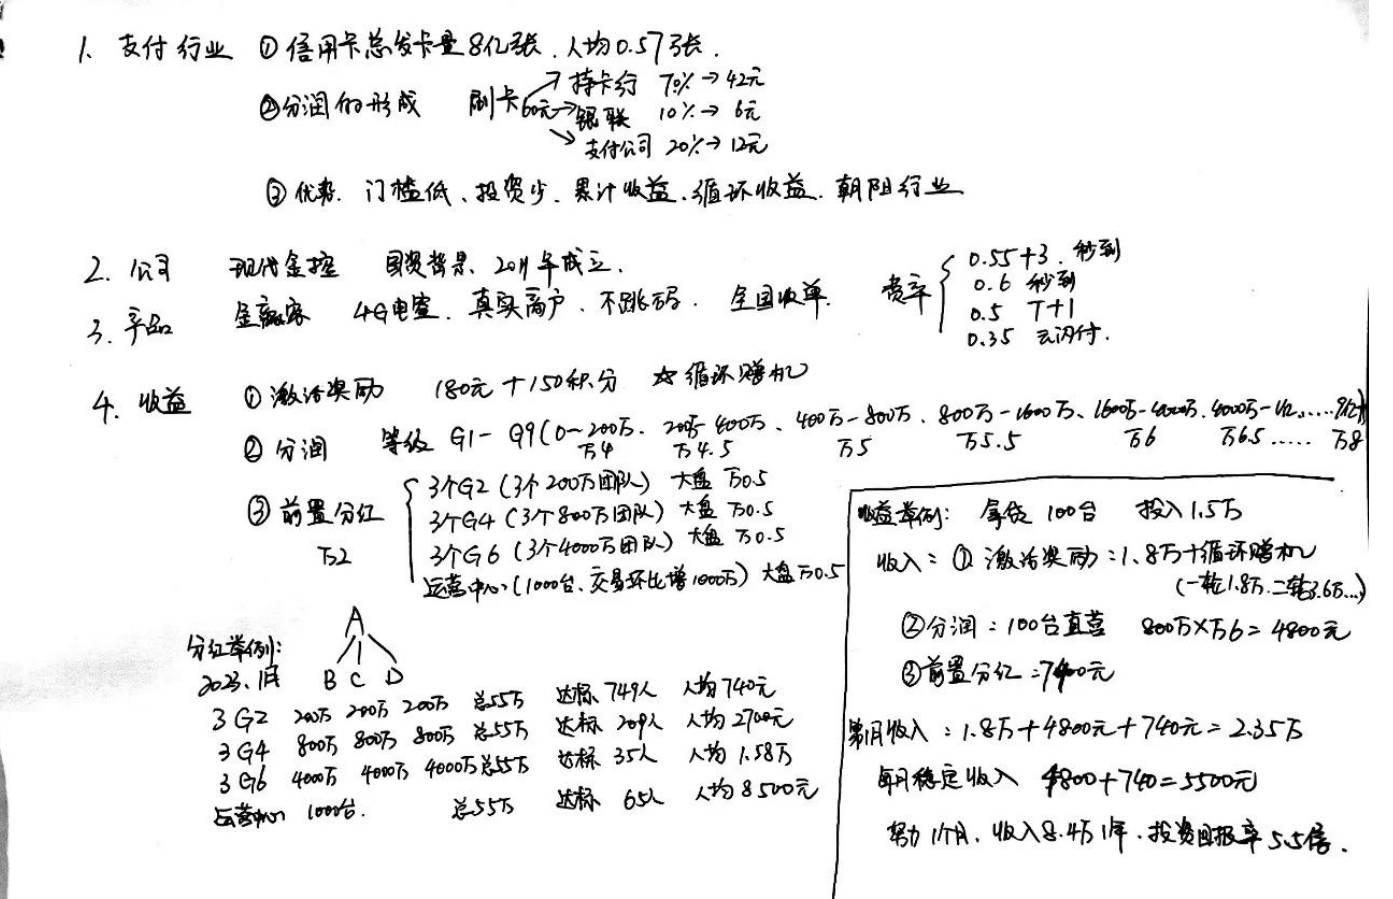 1. 支付行业 ① 信用卡总发卡量8亿张、人均0.57张.
②分润的形成 刷卡60元→ 持卡行 70%→42元
银联 10%→6元
支付公司 20%→12元
③ 优势. 门槛低、投资少、累计收益、循环收益. 朝阳行业
2. 公司 现代金控 国资背景、2011年成立.
3. 产品 金赢客 4G电签. 真实商户、不跳码. 全国收单. 费率
0.55+3. 秒到
0.6 秒到
0.5 T+1
0.35 云闪付.
4. 收益 ① 激活奖励 180元+150积分 ☆循环赠机
② 分润 等级 G1-G9(0~200万. 200万-400万、400万-800万、800万-1600万、1600万-4000万. 4000万-1亿......9亿)
万4 万4.5 万5 万5.5 万6 万6.5...... 万8
③ 前置分红 万2
3个G2 (3个200万团队) 大盘 万0.5
3个G4 (3个800万团队) 大盘 万0.5
3个G6 (3个4000万团队) 大盘 万0.5
运营中心 (1000台、交易环比增1000万) 大盘万0.5
分红举例:
2023.1月
A
B C D
3G2 200万 200万 200万 总55万 达标 749人 人均740元
3G4 800万 800万 800万 总55万 达标 209人 人均2700元
3G6 4000万 4000万 4000万 总55万 达标 35人 人均1.58万
运营中心 1000台. 总55万 达标 65人 人均8500元
收益举例: 拿货100台 投入1.5万
收入: ① 激活奖励:1.8万+循环赠机
(一轮1.8万.二轮3.6万...)
②分润:100台直营 800万×万6=4800元
③前置分红=740元
第1月收入:1.8万+4800元+740元=2.35万
每月稳定收入 4800+740=5500元
努力1个月、收入8.4万1年.投资回报率5.5倍.